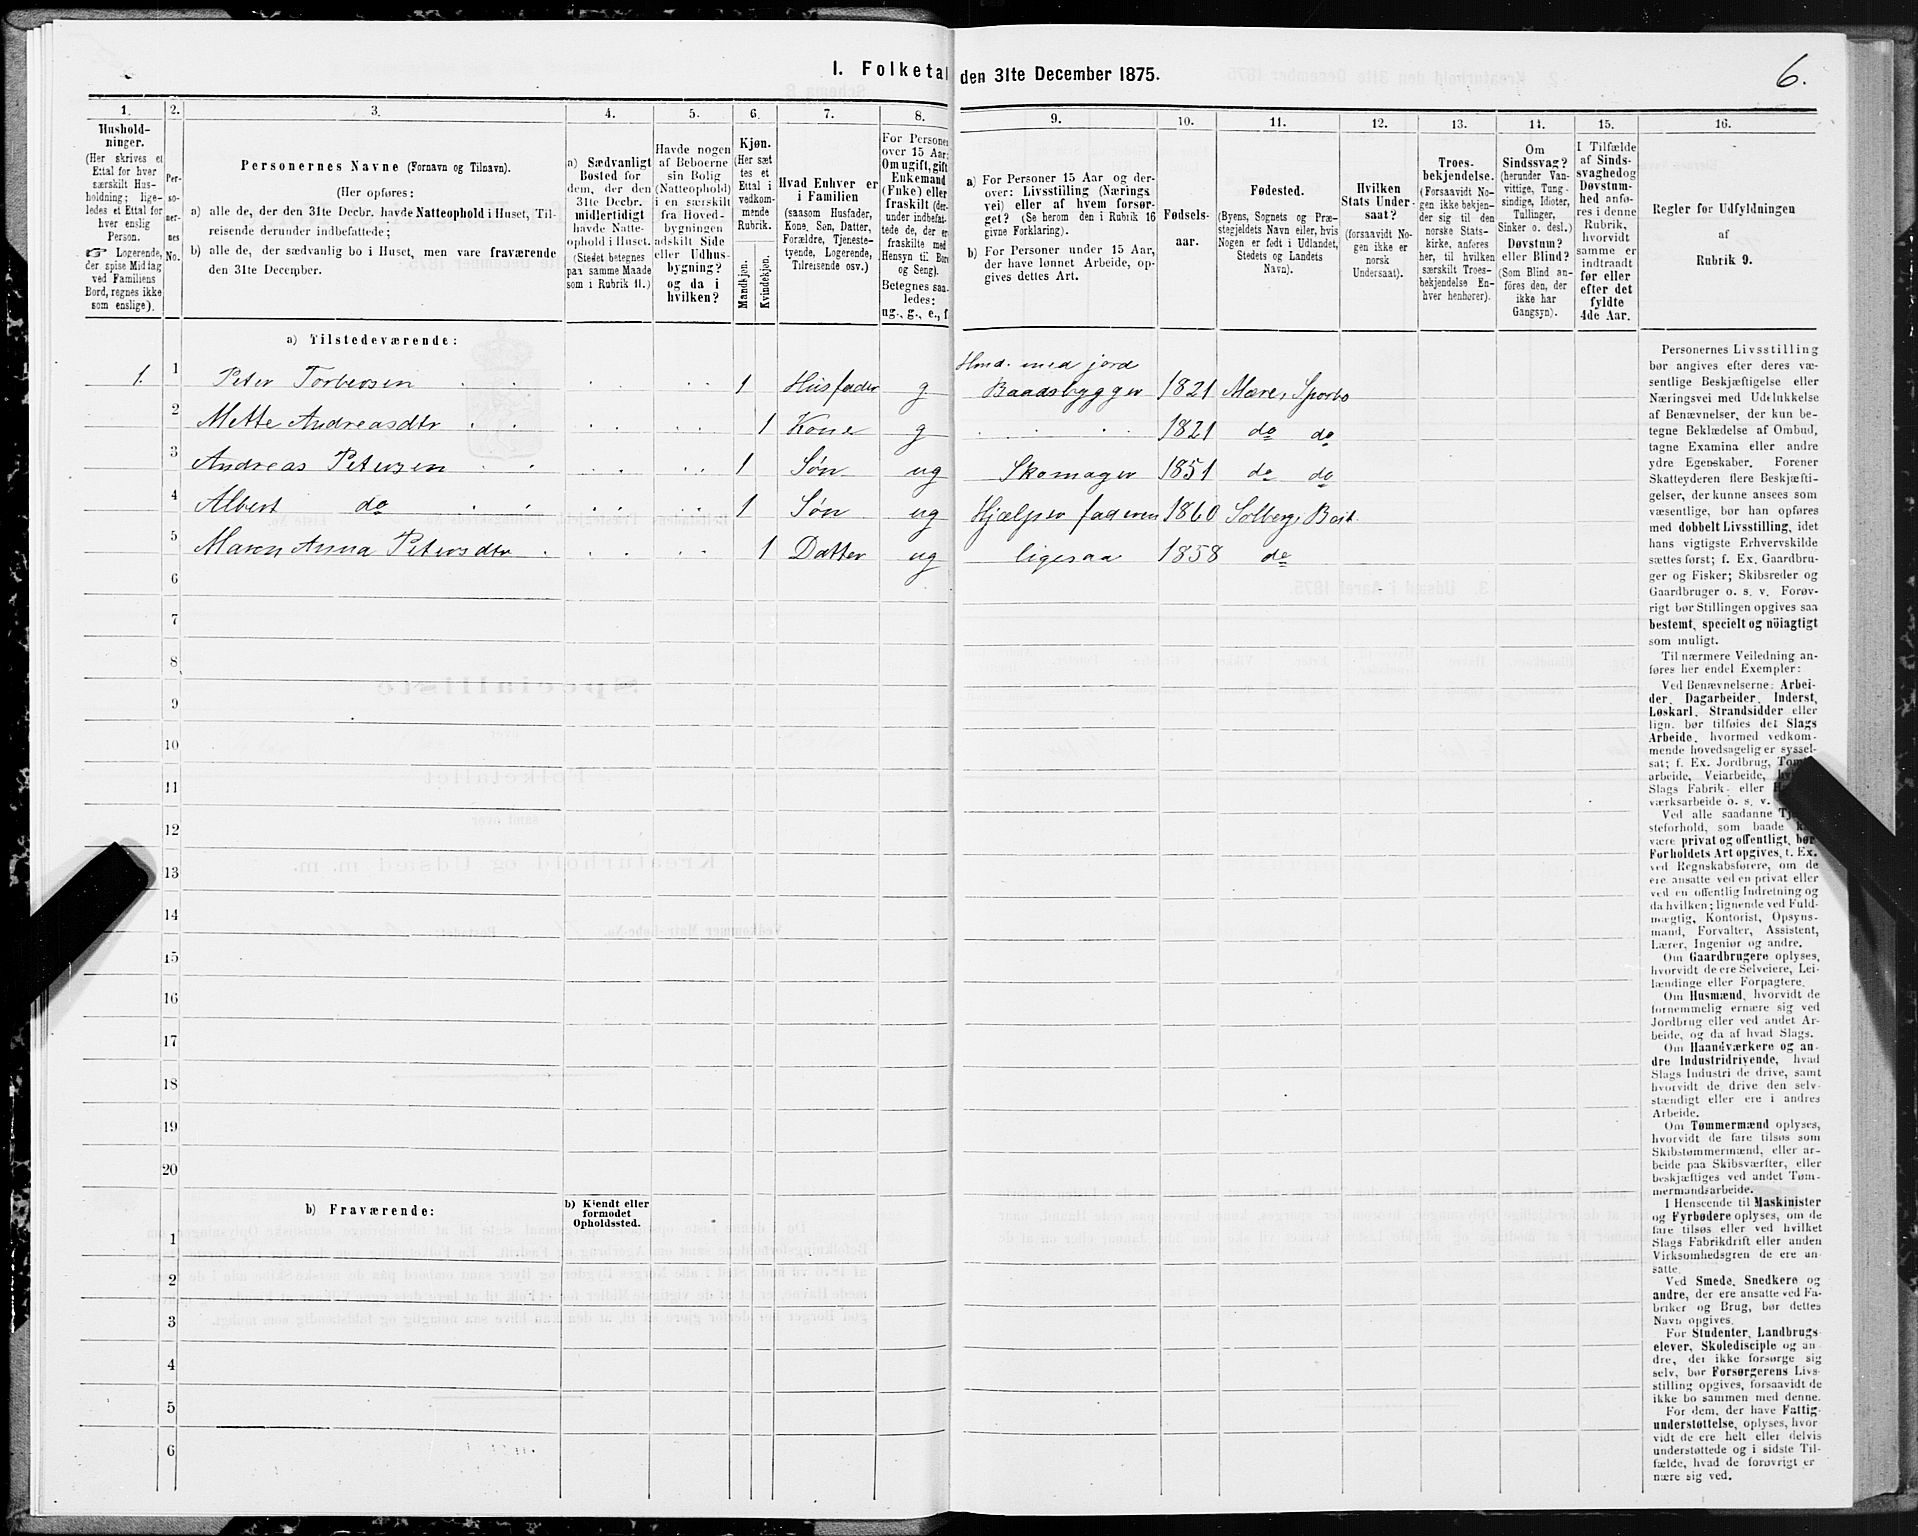 I. Folketal den 31te December 1875.
6.
1.
Hushold-
ninger.
(Her skrives et
Ettal for hver
særskilt Hus-
holdning; lige-
ledes et Ettal for
hver enslig
Person.
Logerende,
der spise Middag
ved Familiens
Bord, regnes ikke
som enslige).
2.
Per-
so-
ner-
nes
No.
3.
Personernes Navne (Fornavn og Tilnavn).
(Her opføres:
a) alle de, der den 31te Decbr. havde Natteophold i Huset, Til-
reisende derunder indbefattede;
b) alle de, der sædvanlig bo i Huset, men vare fraværende
den 31te December.
4.
a) Sædvanligt
Bosted for
dem, der den
31te Decbr.
midlertidigt
havde Natte-
ophold i Huset.
(Stedet betegnes
paa samme Maade
som i Rubrik 11.)
5.
Havde nogen
af Beboerne
sin Bolig
(Natteophold)
i en særskilt
fra Hoved-
bygningen
adskilt Side
eller Udhus-
bygning?
og da i
hvilken?
6.
Kjøn.
(Her sæt
tes et
Ettal i
vedkom-
mende
Rubrik.
Mandkjøn.
Kvindekjøn.
7.
Hvad Enhver er
i Familien
(saasom Husfader,
Kone, Søn, Datter,
Forældre, Tjeneste-
tyende, Logerende,
Tilreisende osv.)
8.
For Personer
over 15 Aar:
Om ugift, gift
Enkemand
(Enke) eller
fraskilt (der-
under indbefat-
tede de, der er
fraskilte med
Hensyn til Bord
og Seng).
Betegnes saa-
ledes:
ug., g., e., f
9.
a) For Personer 15 Aar og der-
over: Livsstilling (Nærings
vei) eller af hvem forsør-
get? (Se herom den i Rubrik 16
givne Forklaring).
b) For Personer under 15 Aar,
der have lønnet Arbeide, op-
gives dettes Art.
10.
Fødsels-
aar.
11.
Fødested.
(Byens, Sognets og Præ-
stegjeldets Navn eller, hvis
Nogen er født i Udlandet,
Stedets og Landets
Navn).
12.
Hvilken
Stats Under-
saat?
(forsaavidt No-
gen ikke er
norsk
Undersaat).
13.
Troes-
bekjendelse.
(Forsaavidt No-
gen ikke bekjen-
der sig til den
norske Stats-
kirke, anføres
her, til hvilken
særskilt Troes-
bekjendelse En-
hver henhører).
14.
Om
Sindssvag?
(herunder Van-
vittige, Tung-
sindige, Idioter,
Tullinger,
Sinker o. desl.)
Døvstum?
eller Blind?
(Som Blind an-
føres den, der
ikke har
Gangsyn).
15.
I Tilfælde
af Sinds-
svaghed og
Døvstum-
hed anfø-
res i denne
Rubrik,
hvorvidt
samme er
indtraadt
før eller
efter det
fyldte
4de Aar.
16.
Regler for Udfyldningen
af
Rubrik 9.
a) Tilstedeværende:
1. 1 Peter Torbersen 1 Husfader g Hmd. med jord Baadsbygger 1821 Mære, Sparbo
2 Mette Andreasdtr 1 Kone g 1821 do do
3 Andreas Petersen 1 Søn ug Skomager 1851 do do
4 Albert do 1 Søn ug Hjælper faderen 1860 Solberg, Beit.
5 Maren Anna Petersdtr 1 Datter ug ligesaa 1858 do
6
7
8
9
10
11
12
13
14
15
16
17
18
19
20
b) Fraværende:
b) Kjendt eller
formodet
Opholdssted.
1
2
3
4
5
6
Personernes Livsstilling
bør angives efter deres væ-
sentlige Beskjæftigelse eller
Næringsvei med Udelukkelse
af Benævnelser, der kun be-
tegne Beklædelse af Ombud,
tagne Examina eller andre
ydre Egenskaber. Forener
Skatteyderen flere Beskjæfti-
gelser, der kunne ansees som
væsentlige, bør han opføres
med dobbelt Livsstilling, idet
hans vigtigste Erhvervskilde
sættes først; f. Ex. Gaardbru-
ger og Fisker; Skibsreder og
Gaardbruger o. s. v. Forøv-
rigt bør Stillingen opgives saa
bestemt, specielt og nöiagtigt
som muligt.
Til nærmere Veiledning an-
føres her endel Exempler:
Ved Benævnelserne: Arbei-
der, Dagarbeider, Inderst,
Løskarl, Strandsidder eller
lign. bør tilføies det Slags
Arbeide, hvormed vedkom-
mende hovedsagelig er syssel-
sat; f. Ex. Jordbrug, Tomt-
arbeide, Veiarbeide,
Slags Fabrik- eller
værksarbeide o. s. v.
Ved alle saadanne
steforhold, som baade
være privat og offentligt, bør
Forholdets Art opgives, f. Ex.
ved Regnskabsførere, om de
ere ansatte ved en privat eller
ved en offentlig Indretning og
da hvilken; lignende ved Fuld-
mægtig, Kontorist, Opsyns-
mand, Forvalter, Assistent,
Lærer, Ingeniør og andre.
Om Gaardbrugere oplyses,
hvorvidt de ere Selveiere, Lei-
lændinge eller Forpagtere.
Om Husmænd, hvorvidt de
fornemmelig ernære sig ved
Jordbrug eller ved andet Ar-
beide, og da af hvad Slags.
Om Haandværkere og an-
dre Industridrivende, hvad
Slags Industri de drive, samt
hvorvidt de drive den selv-
stændigt eller ere i andres
Arbeide.
Om Tømmermænd oplyses,
hvorvidt de fare tilsøs som
Skibstømmermænd, eller ar-
beide paa Skibsværfter, eller
beskjæftiges ved andet Tøm-
mermandsarbeide.
I Henseende til Maskinister
og Fyrbødere oplyses, om de
fare tilsøs eller ved hvilket
Slags Fabrikdrift eller anden
Virksomhedsgren de ere an-
satte.
Ved Smede, Snedkere og
andre, der ere ansatte ved Fa-
briker og Brug, bør dettes
Navn opgives.
For Studenter, Landbrugs-
elever, Skoledisciple og an-
dre, der ikke forsørge sig
selv, bør Forsørgerens Livs-
stilling opgives, forsaavidt de
ikke bo sammen med denne.
For dem, der have Fattig-
understøttelse, oplyses, hvor
vidt de ere helt eller delvis
understøttede og i sidste Til-
fælde, hvad de forøvrigt er
nære sig ved.